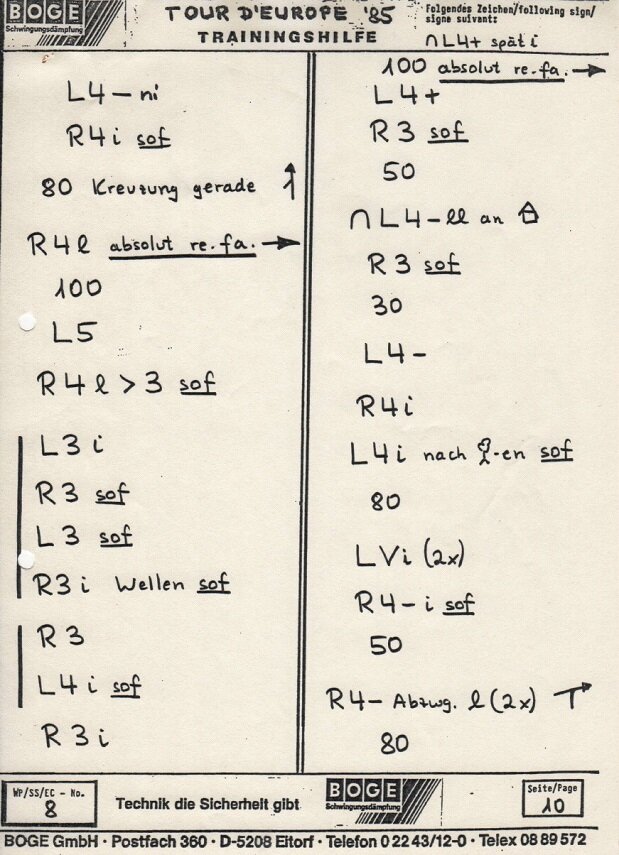 BOGE
Schwingungsdämpfung
TOUR D'EUROPE '85
TRAININGSHILFE
Folgendes Zeichen/following sign/
signe suivant:
∩L4+ spät i
L4-ni
R4i sof
80 Kreuzung gerade
R4l absolut re.fa. →
100
L5
R4l > 3 sof
L3i
R3 sof
L3 sof
R3i Wellen sof
R3
L4i sof
R3i
100 absolut re.fa. →
L4+
R3 sof
50
∩L4-ll an
R3 sof
30
L4-
R4i
L4i nach -en sof
80
LVi (2x)
R4-i sof
50
R4- Abzwg. l (2x)
80
WP/SS/EC - No.
8
Technik die Sicherheit gibt
BOGE
Schwingungsdämpfung
Seite/Page
10
BOGE GmbH · Postfach 360 · D-5208 Eitorf · Telefon 0 22 43/12-0 · Telex 08 89 572